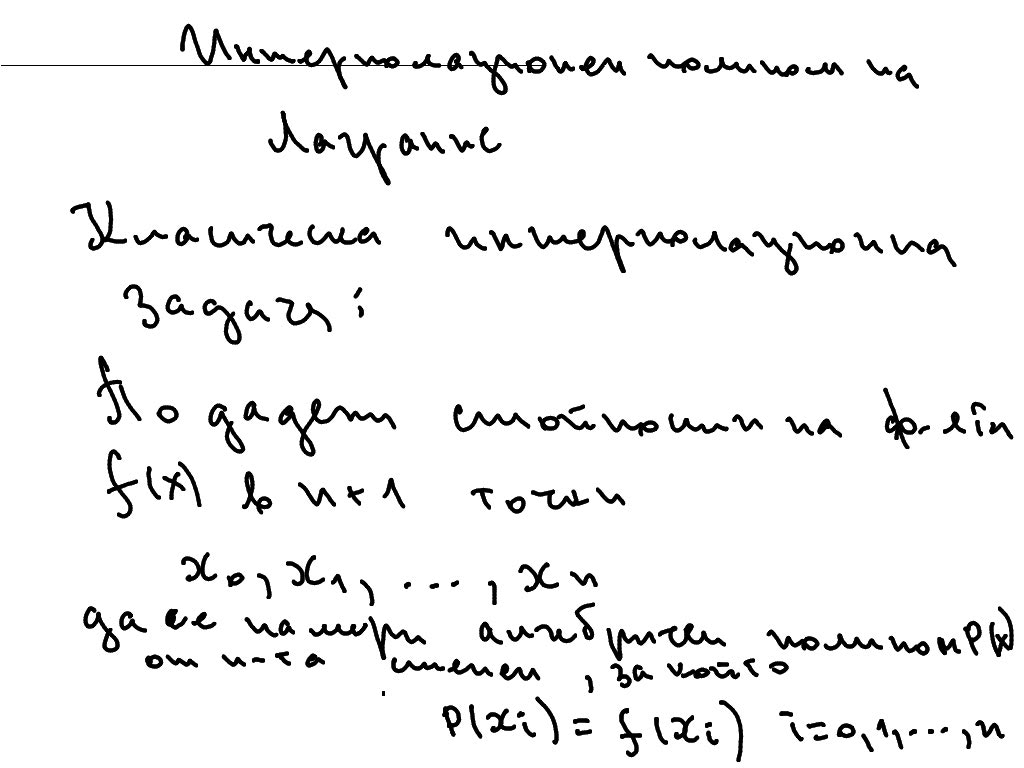 Интерполационен полином на
Лагранж
Класическа интерполационна
задача:
По дадени стойности на ф-ейн
f(x) в n+1 точки
x₀, x₁, ..., xn
да се намери алгебричен полином P(x)
от n-та степен, за който
P(xi) = f(xi) i=0,1,...,n